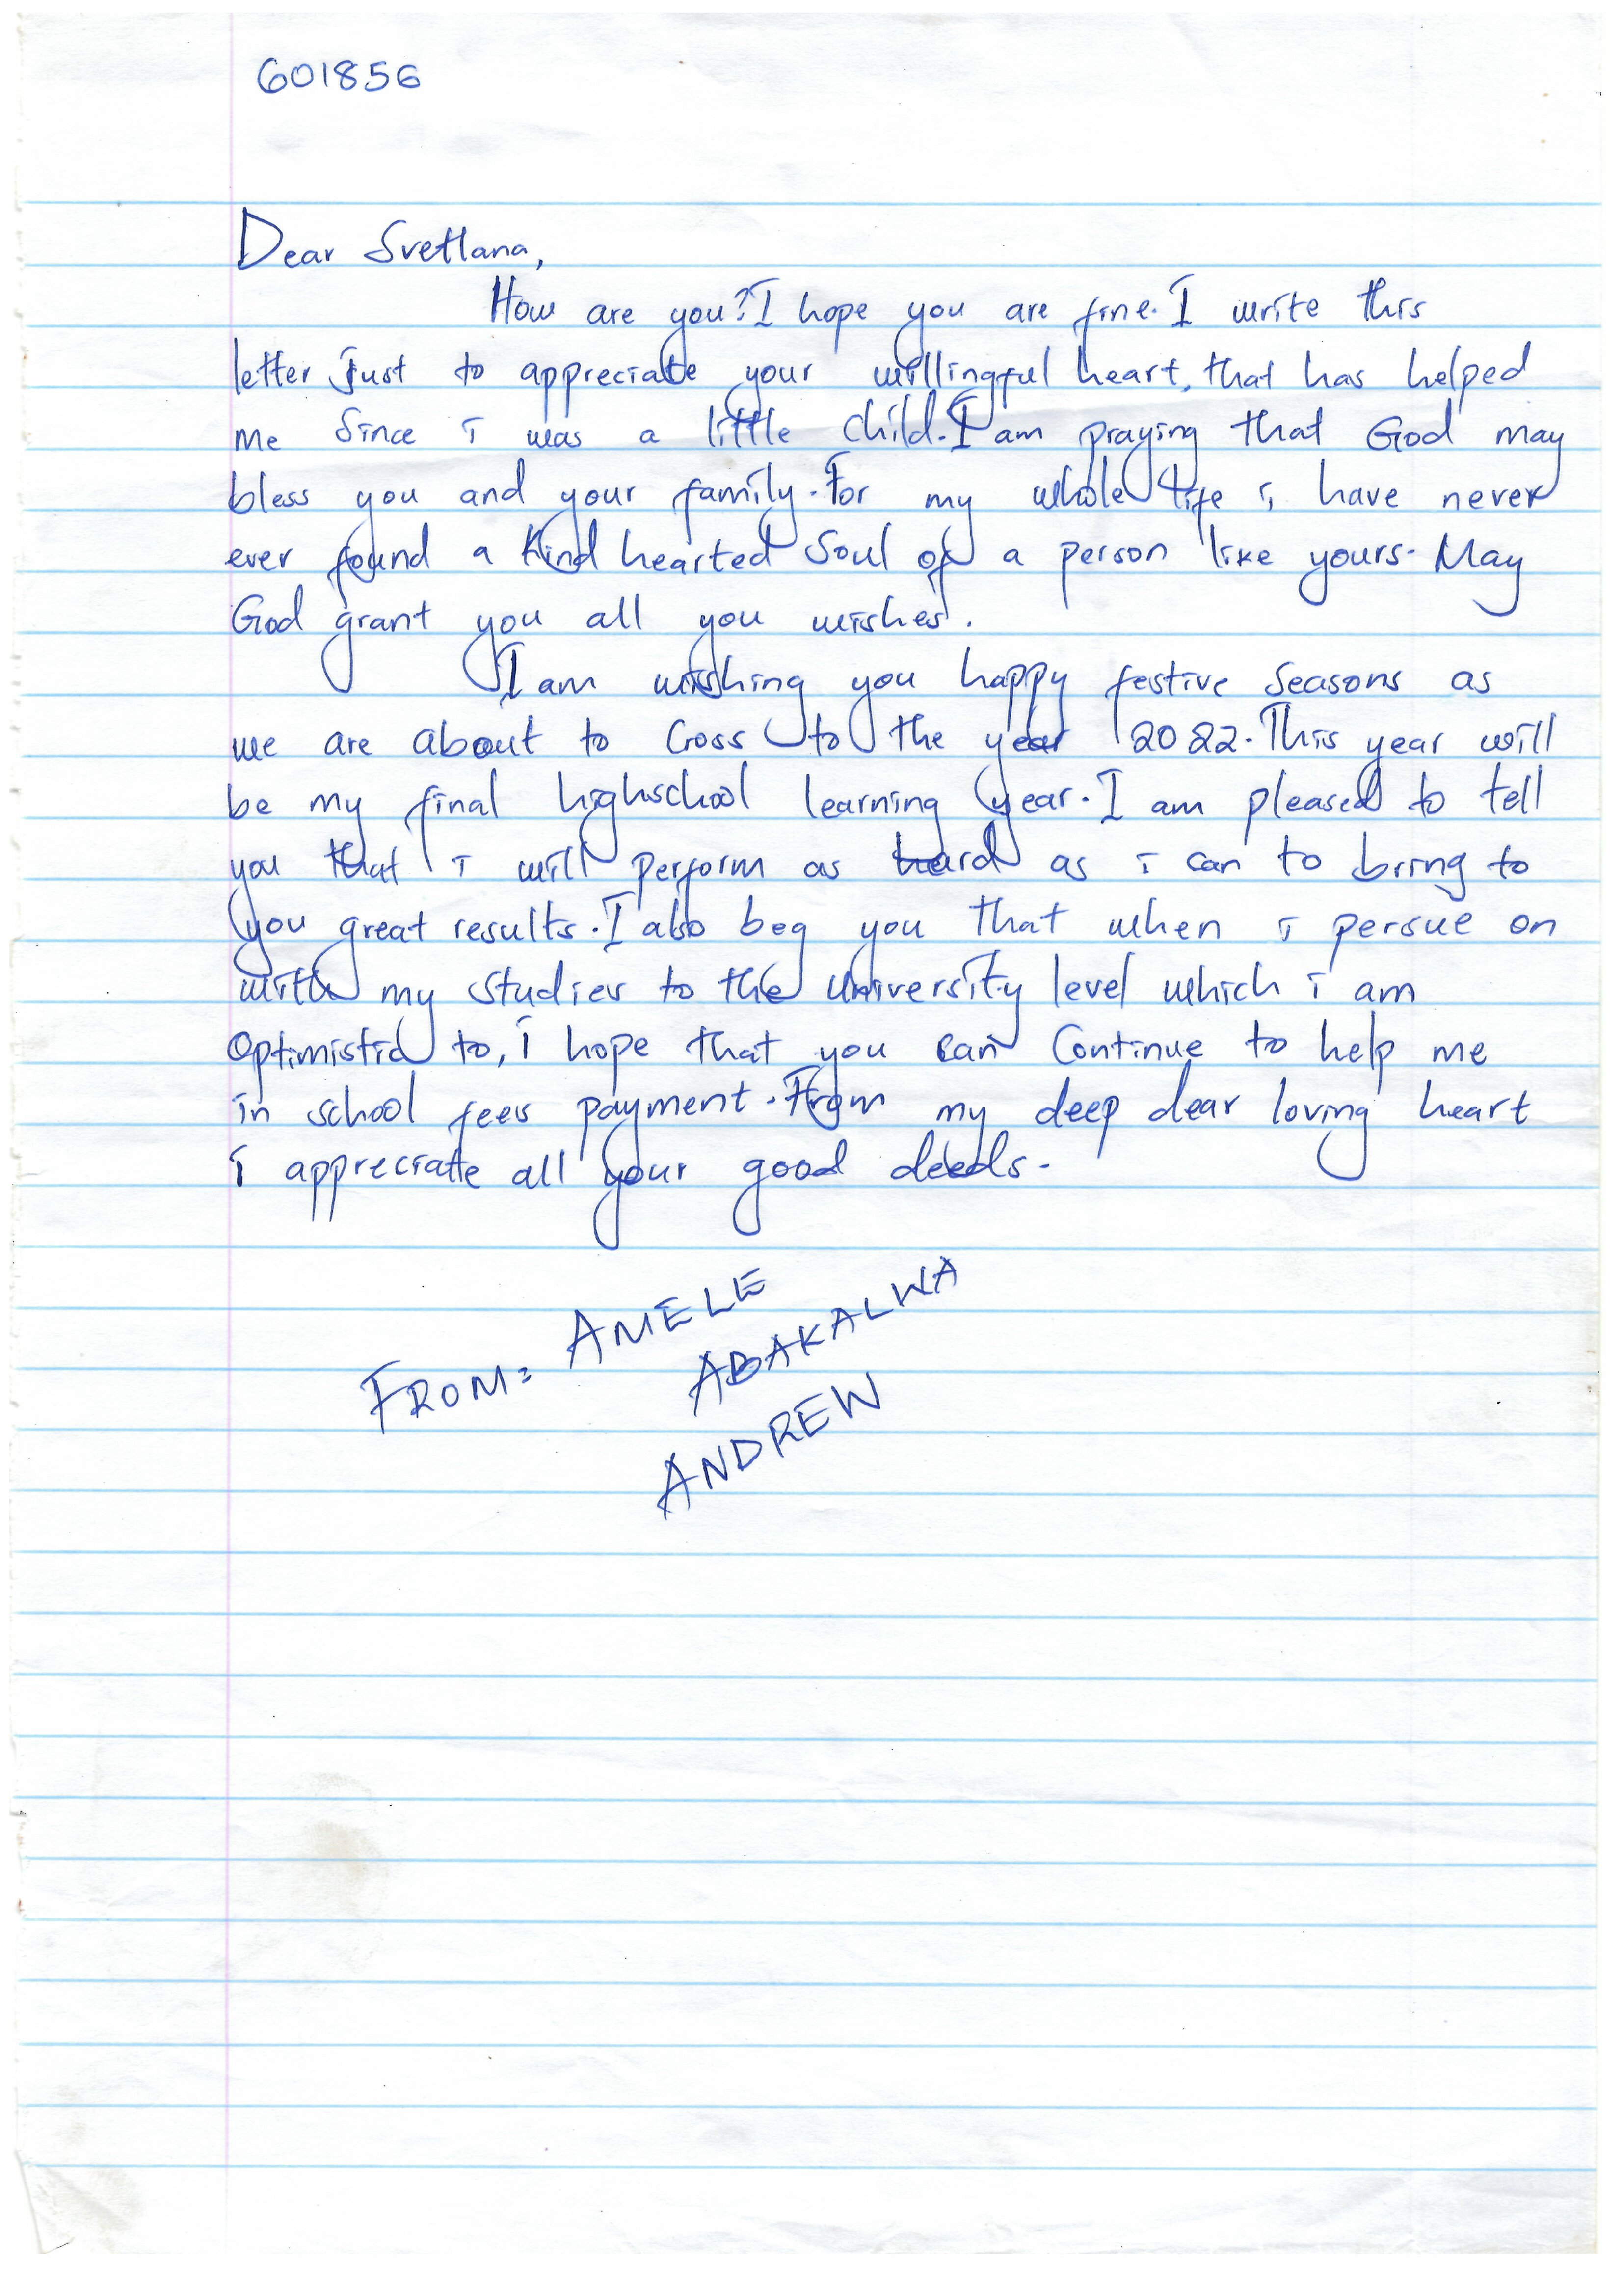 601856
Dear Svetlana,
How are you? I hope you are fine. I write this
letter just to appreciate your willingful heart, that has helped
me since i was a little child. I am praying that God may
bless you and your family. For my whole life i have never
ever found a kind hearted soul of a person like yours. May
God grant you all you wishes.
I am wishing you happy festive seasons as
we are about to cross to the year 2022. This year will
be my final highschool learning year. I am pleased to tell
you that i will perform as hard as i can to bring to
you great results. I also beg you that when i persue on
with my studies to the university level which i am
optimistic to, i hope that you can continue to help me
in school fees payment. From my deep dear loving heart
i appreciate all your good deeds.
FROM: AMELE
ABAKALWA
ANDREW